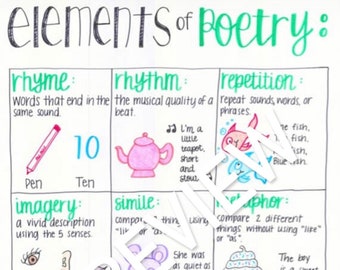 elements of poetry:
rhyme:
words that end in the
same sound.
10
Pen Ten
rhythm:
the musical quality of a
beat.
I'm a
little
teapot,
short
and
stout.
repetition:
repeat sounds, words, or
phrases.
fish,
fish,
Blue fish.
imagery:
a vivid description
using the 5 senses.
simile:
compare 2 things using
"like" or "as".
She was
as quiet as
metaphor:
compare 2 different
things without using "like"
or "as".
The boy
is a
PREVIEW